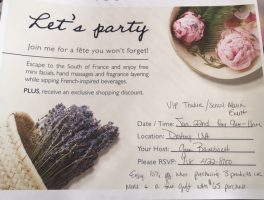 Let's party
Join me for a fête you won't forget!
Escape to the South of France and enjoy free
mini facials, hand massages and fragrance layering
while sipping French-inspired beverages.
PLUS, receive an exclusive shopping discount.
VIP Teacher/School
Event
Date / Time: Jan. 22nd 9am-
Location: Destiny USA
Your Host:
Please RSVP:
Enjoy 10% off when purchasing 3 products
more & a free gift with $65 purchase.